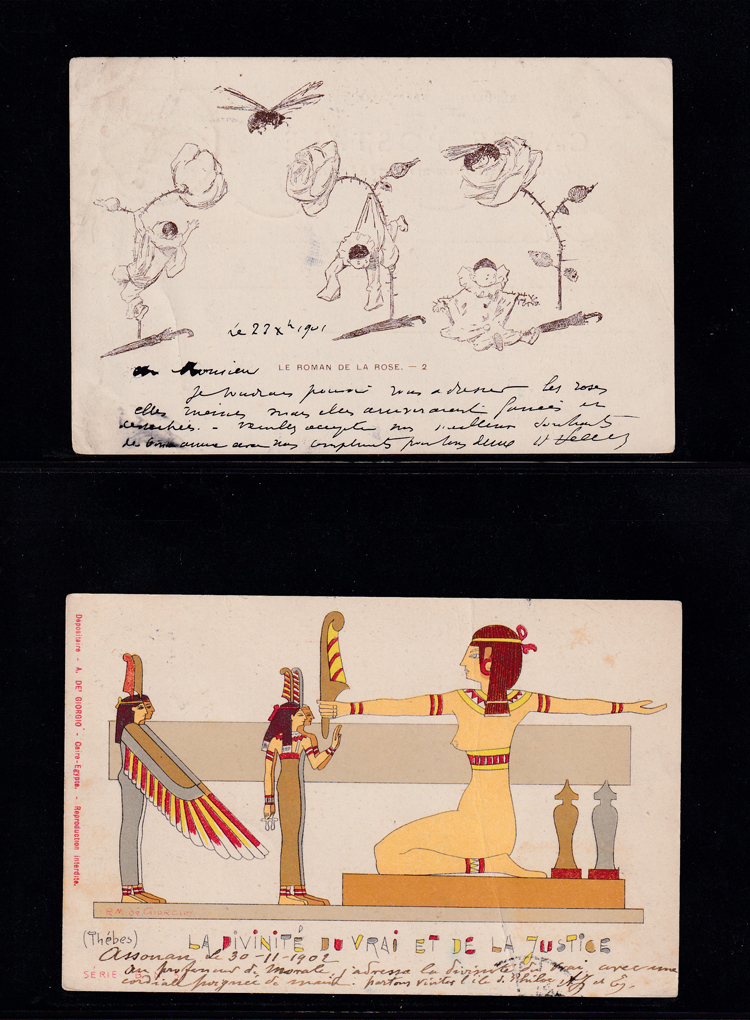 Le 23 Xbre 1901
Monsieur
LE ROMAN DE LA ROSE. — 2
Je voudrais pouvoir vous adresser les roses
elles mêmes mais elles arriveraient fanées et
desséchées. — Veuillez accepter nos meilleurs souhaits
de bonne année avec nos compliments pour tous deux
Dépositaire - A. DE' GIORGIO - Caire-Egypte. - Reproduction interdite.
(Thébes)
LA DIVINITÉ DU VRAI ET DE LA JUSTICE
Assouan, le 30-11-1902
SÉRIE
au professeur de Morale j'adresse la divinité du Vrai avec une
cordiale poignée de main. partons visiter l'île de Philae